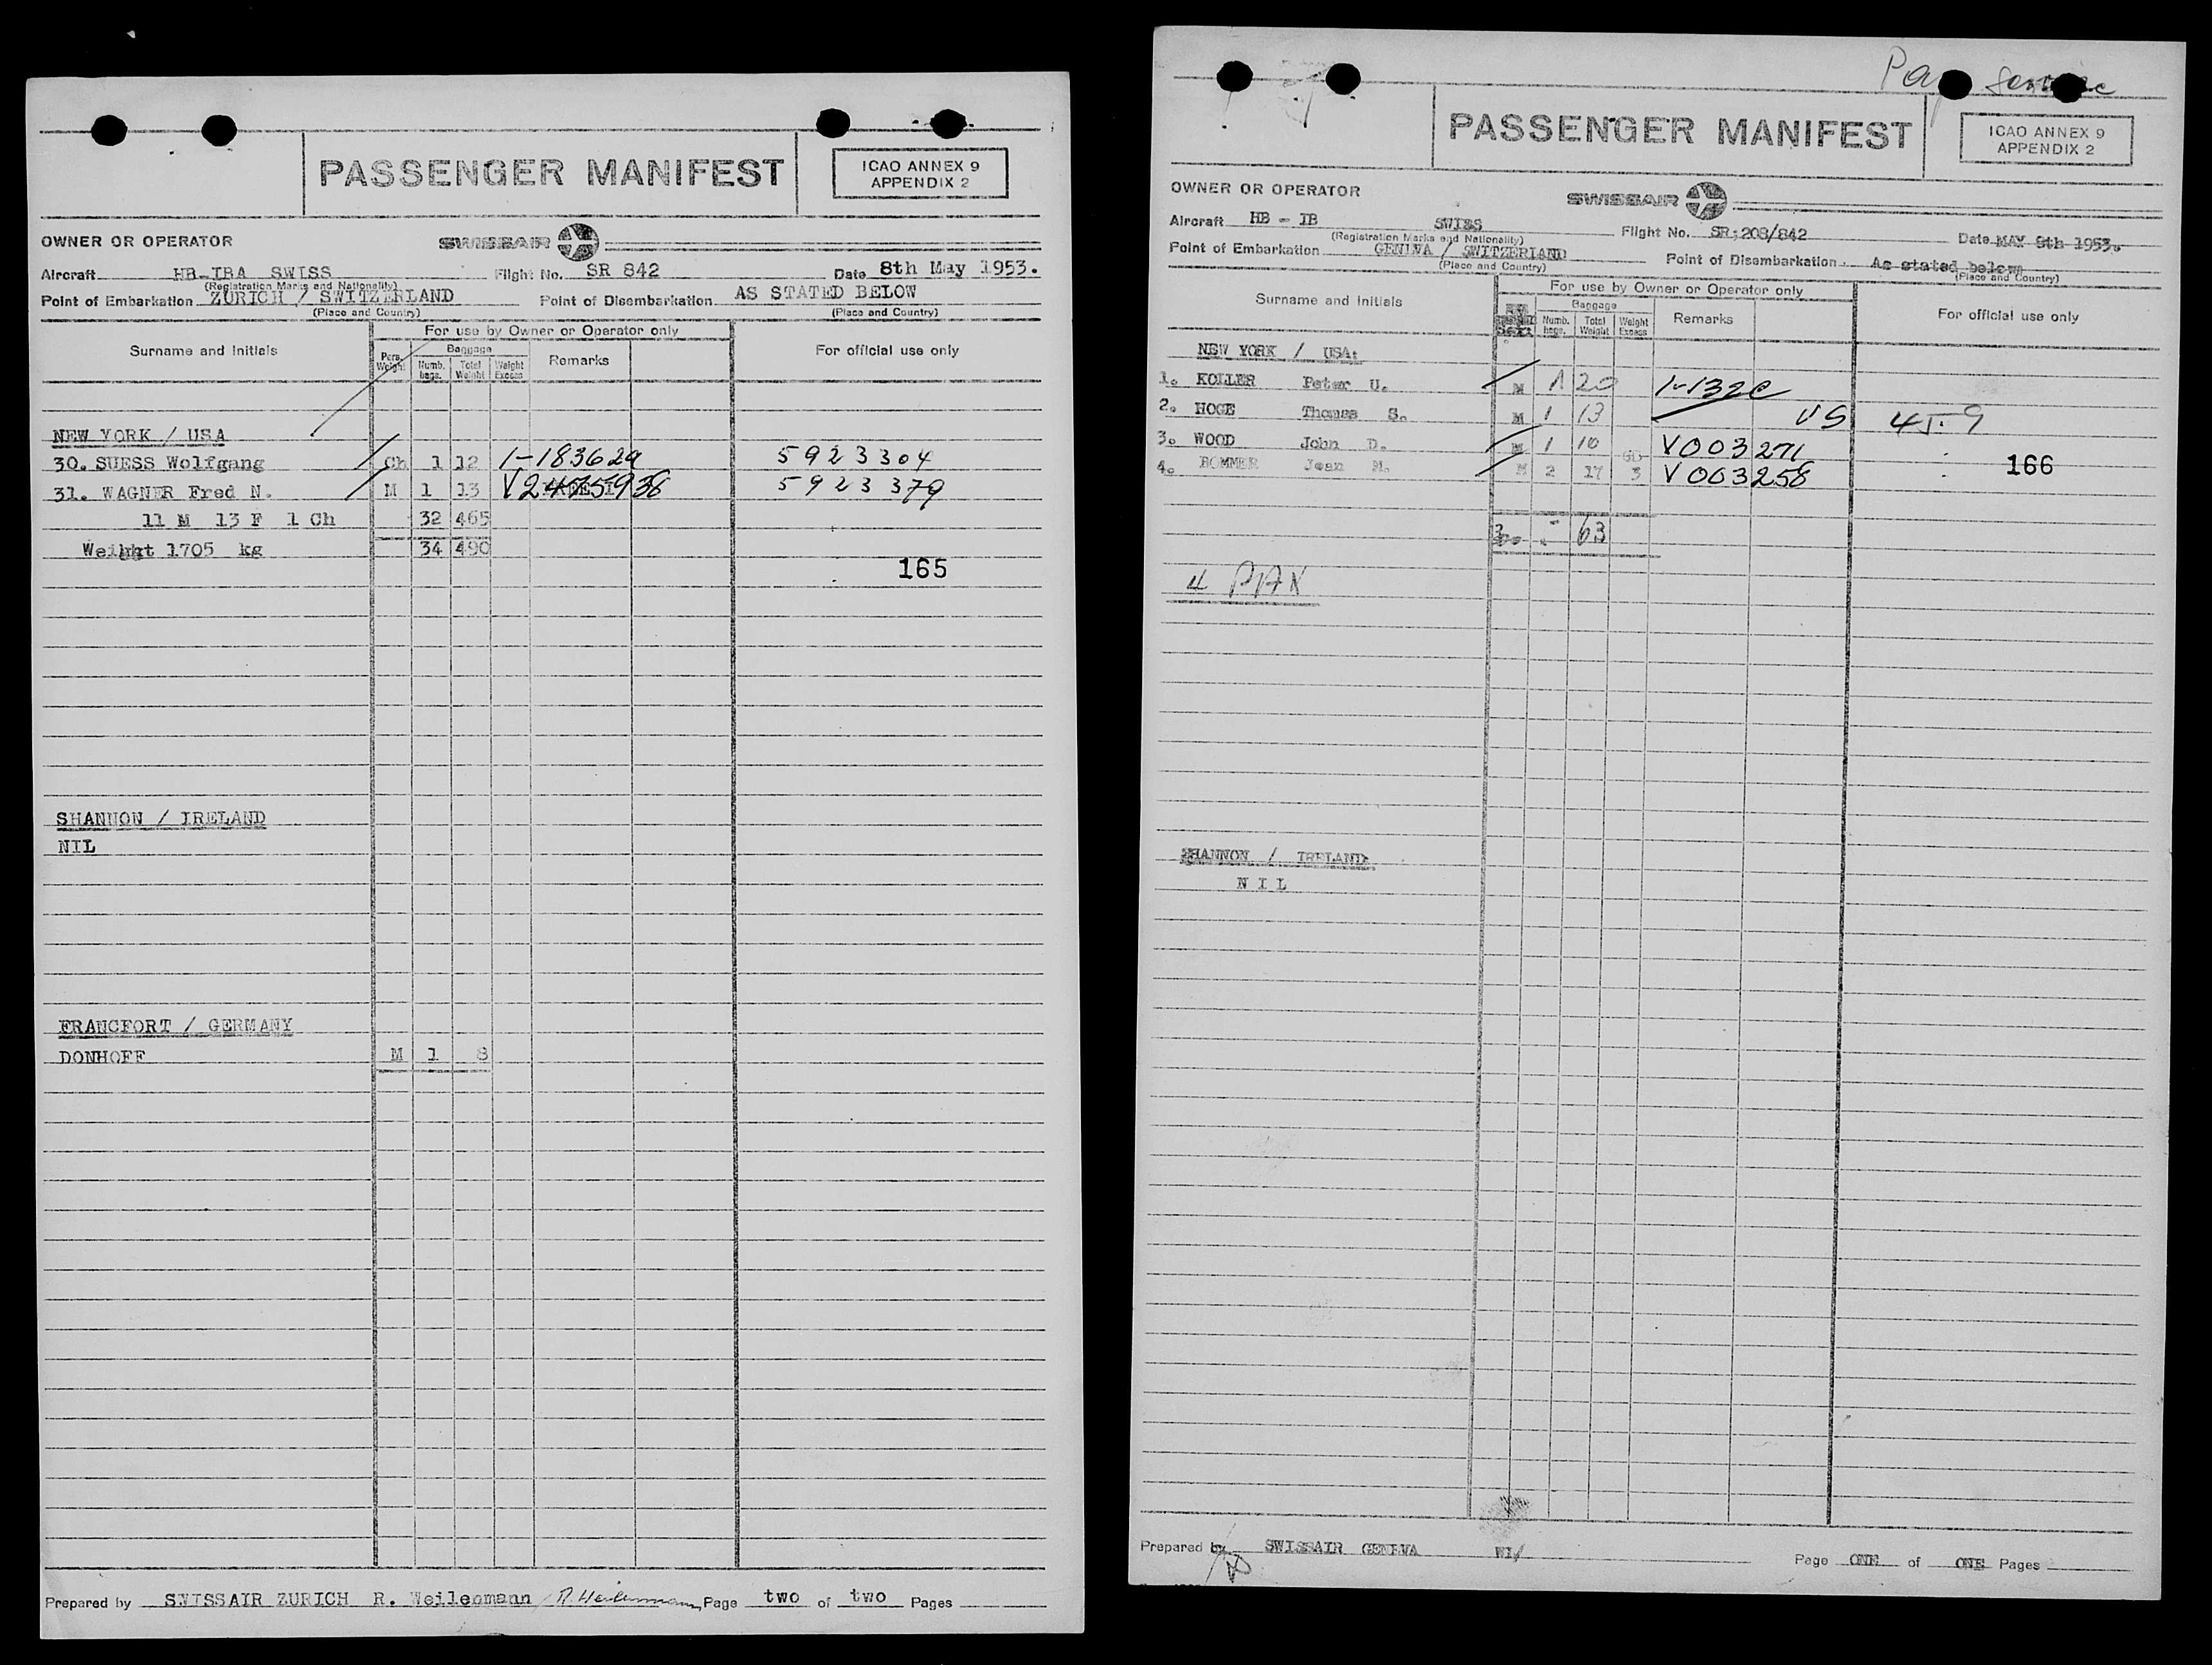 PASSENGER MANIFEST
ICAO ANNEX 9
APPENDIX 2
OWNER OR OPERATOR SWISSAIR
Aircraft HB-IBA SWISS Flight No. SR 842 Date 8th May 1953.
(Registration Marks and Nationality)
Point of Embarkation ZURICH / SWITZERLAND Point of Disembarkation AS STATED BELOW
(Place and Country) (Place and Country)
For use by Owner or Operator only
Surname and Initials Pers. Weight Baggage Numb. bags. Total Weight Weight Excess Remarks For official use only
NEW YORK / USA
30. SUESS Wolfgang Ch 1 12 1-183629 5923304
31. WAGNER Fred N. M 1 13 5923379
11 M 13 F 1 Ch 32 465
Weight 1705 kg 34 490
165
SHANNON / IRELAND
NIL
FRANCFORT / GERMANY
DONHOFF M 1 8
Prepared by SWISSAIR ZURICH R. Weilenmann Page two of two Pages
PASSENGER MANIFEST
ICAO ANNEX 9
APPENDIX 2
OWNER OR OPERATOR SWISSAIR
Aircraft HB - IB SWISS Flight No. SR 208/842 Date MAY 8th 1953.
(Registration Marks and Nationality)
Point of Embarkation GENEVA / SWITZERLAND Point of Disembarkation As stated below
(Place and Country) (Place and Country)
For use by Owner or Operator only
Surname and Initials Sex Baggage Numb. bags. Total Weight Weight Excess Remarks For official use only
NEW YORK / USA:
1. KOLLER Peter U. M 1 20
2. HOGE Thomas S. M 1 13 US 45.9
3. WOOD John D. M 1 10 V003271
4. BOMMER Jean M. M 2 17 3 V003258
166
63
4 PAX
SHANNON / IRELAND
N I L
Prepared by SWISSAIR GENEVA WI/ Page ONE of ONE Pages